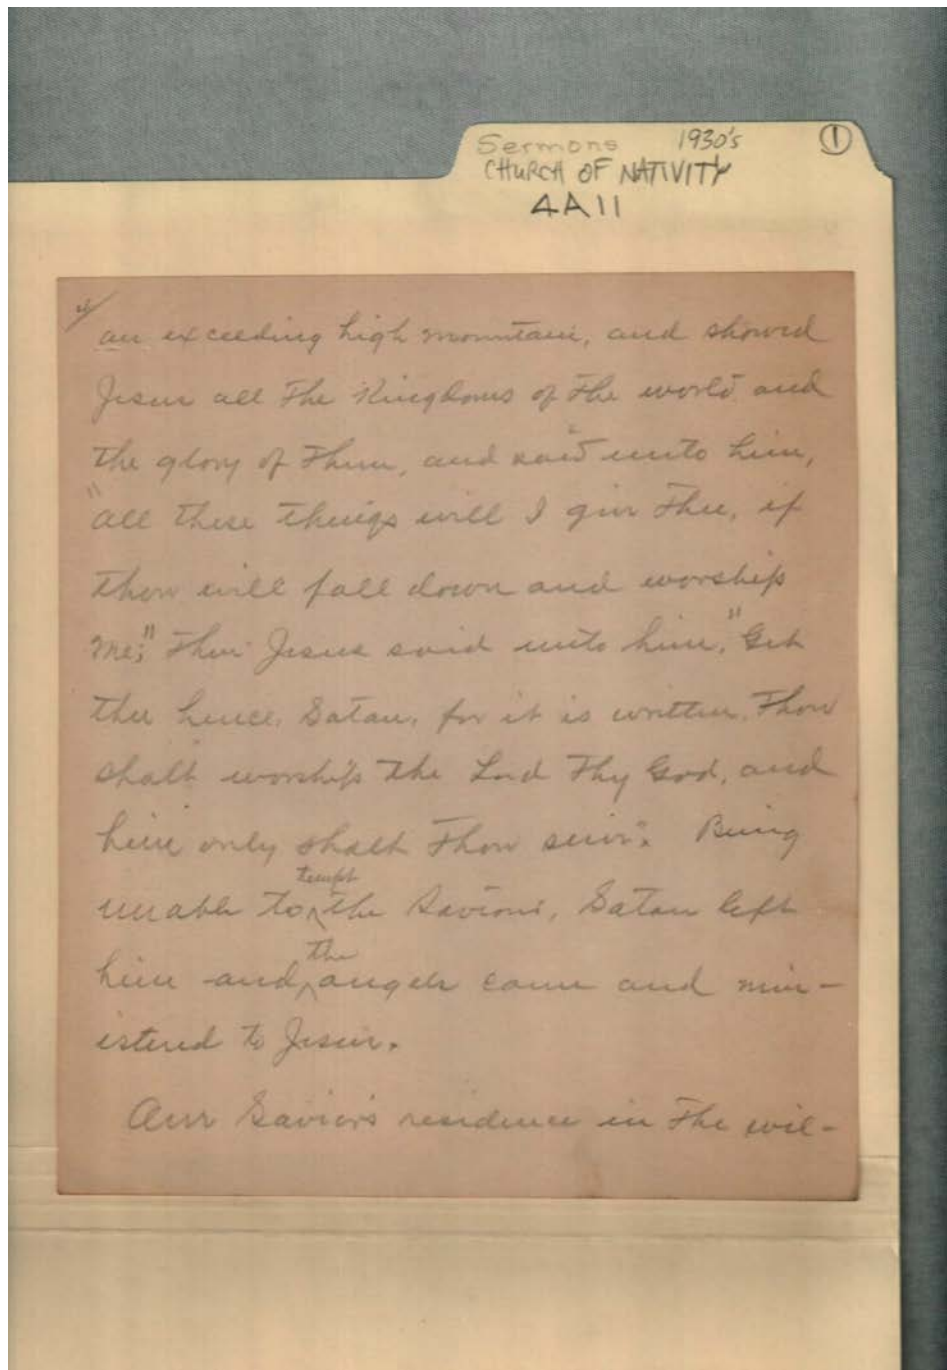 Sermons 1930's ①
CHURCH OF NATIVITY
4A11
4/
an exceeding high mountain, and showed
Jesus all the Kingdoms of the world and
the glory of them, and said unto him,
"all these things will I give thee, if
thou will fall down and worship
me;" Then Jesus said unto him, "Get
thee hence, Satan, for it is written, Thou
shalt worship the Lord Thy God, and
him only shalt Thou serve". Being
tempt
unable to ^ the Saviour, Satan left
the
him and ^ angels came and min-
istered to Jesus.
Our Savior's residence in the wil-